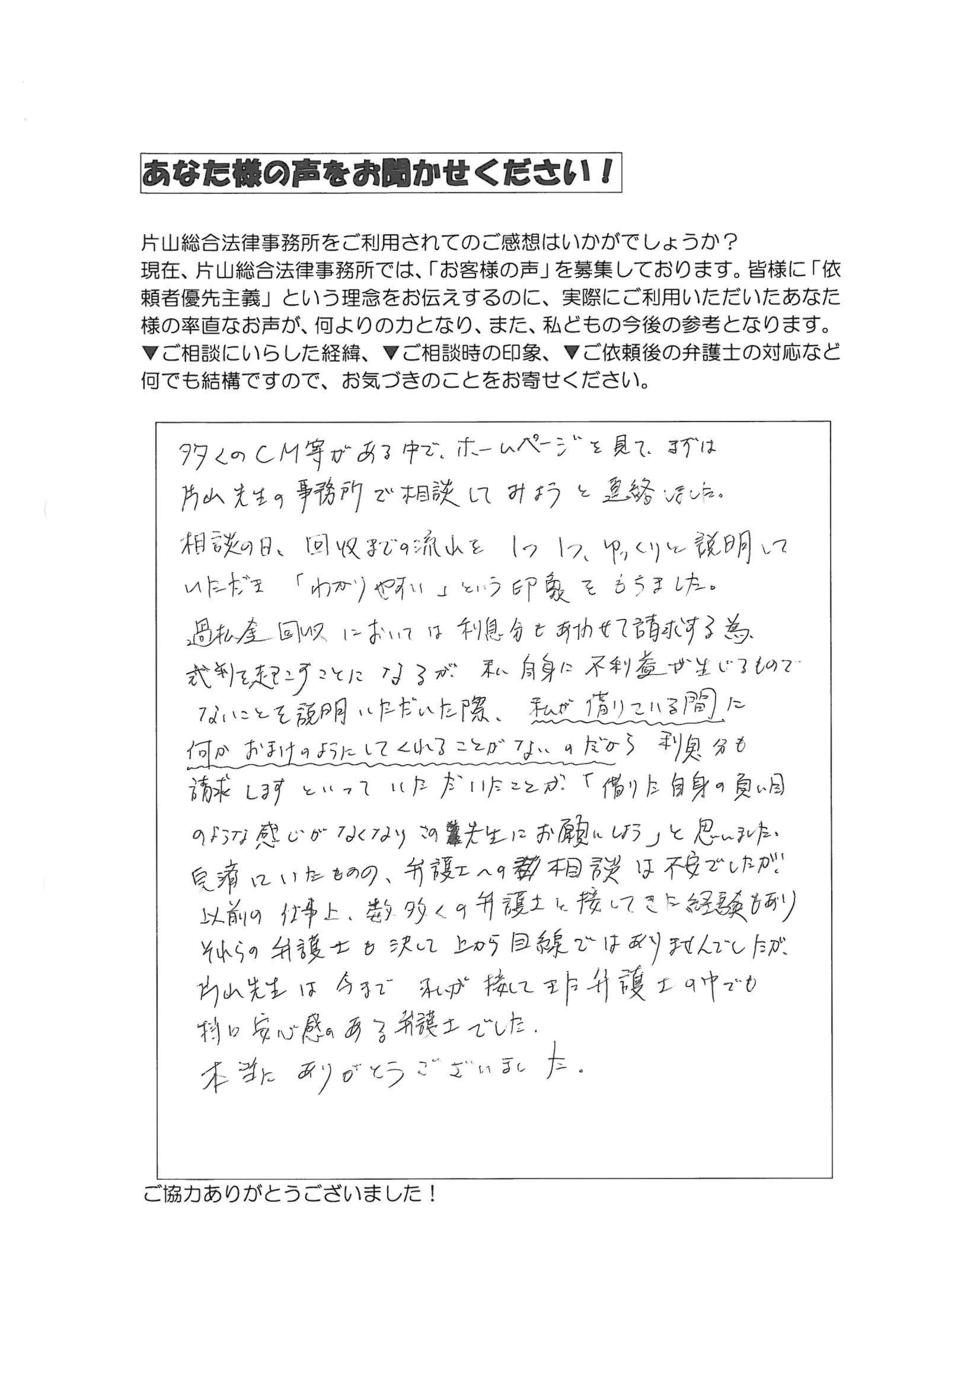 あなた様の声をお聞かせください！
片山総合法律事務所をご利用されてのご感想はいかがでしょうか？
現在、片山総合法律事務所では、「お客様の声」を募集しております。皆様に「依
頼者優先主義」という理念をお伝えするのに、実際にご利用いただいたあなた
様の率直なお声が、何よりの力となり、また、私どもの今後の参考となります。
▼ご相談にいらした経緯、▼ご相談時の印象、▼ご依頼後の弁護士の対応など
何でも結構ですので、お気づきのことをお寄せください。
多くのCM等がある中で、ホームページを見て、まずは
片山先生の事務所で相談してみようと連絡しました。
相談の日、回収までの流れを1つ1つ、ゆっくりと説明して
いただき「わかりやすい」という印象をもちました。
過払金回収においては利息分もあわせて請求する為、
裁判を起こすことになるが、私自身に不利益が生じるもので
ないことを説明いただいた際、私が借りている間に
何かおまけのようにしてくれることがないのだから利息分も
請求しますといっていただいたことが、「借りた自身の負い目
のような感じがなくなりこの先生にお願いしよう」と思いました。
完済していたものの、弁護士への相談は不安でしたが、
以前の仕事上、数多くの弁護士と接してきた経験もあり
それらの弁護士も決して上から目線ではありませんでしたが、
片山先生は今まで私が接してきた弁護士の中でも
特に安心感のある弁護士でした。
本当にありがとうございました。
ご協力ありがとうございました！